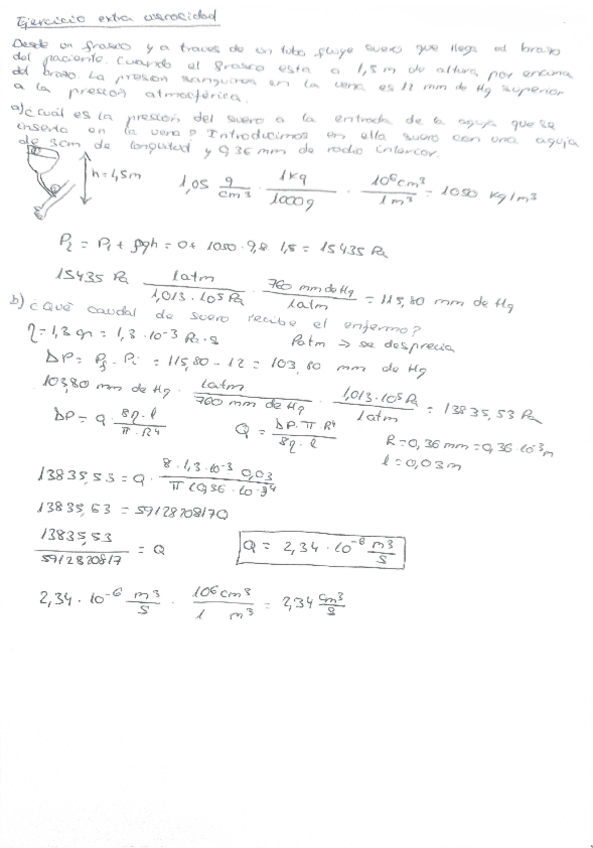 Ejercicio extra viscosidad
Desde un frasco y a traves de un tubo fluye suero que llega al brazo
del paciente. Cuando el frasco esta a 1,5 m de altura por encima
del brazo. La presion sanguinea en la vena es 12 mm de Hg superior
a la presión atmosférica.
a) ¿Cuál es la presion del suero a la entrada de la aguja que se
inserta en la vena? Introducimos en ella suero con una aguja
de 3cm de longitud y 0,36 mm de radio interior.
h = 1,5m
1,05 g/cm³ · 1kg/1000g · 10⁶cm³/1m³ = 1050 kg/m³
P₂ = P₁ + ρgh = 0 + 1050 · 9,8 · 1,5 = 15435 Pa
15435 Pa · 1atm/1,013 · 10⁵Pa · 760 mm de Hg/1atm = 115,80 mm de Hg
b) ¿Qué caudal de suero recibe el enfermo?
η = 1,3 · 10⁻³ Pa · s Patm ⇒ se desprecia
ΔP = Pf - Pi = 115,80 - 12 = 103,80 mm de Hg
103,80 mm de Hg · 1atm/760 mm de Hg · 1,013 · 10⁵Pa/1atm = 13835,53 Pa
ΔP = Q · 8η · l/π · R⁴ Q = ΔP · π · R⁴/8η · l R = 0,36 mm = 0,36 · 10⁻³m
l = 0,03m
13835,53 = Q · 8 · 1,3 · 10⁻³ · 0,03/π (0,36 · 10⁻³)⁴
13835,53 = 5912820817Q
13835,53/5912820817 = Q Q = 2,34 · 10⁻⁶ m³/s
2,34 · 10⁻⁶ m³/s · 10⁶ cm³/1 m³ = 2,34 cm³/s